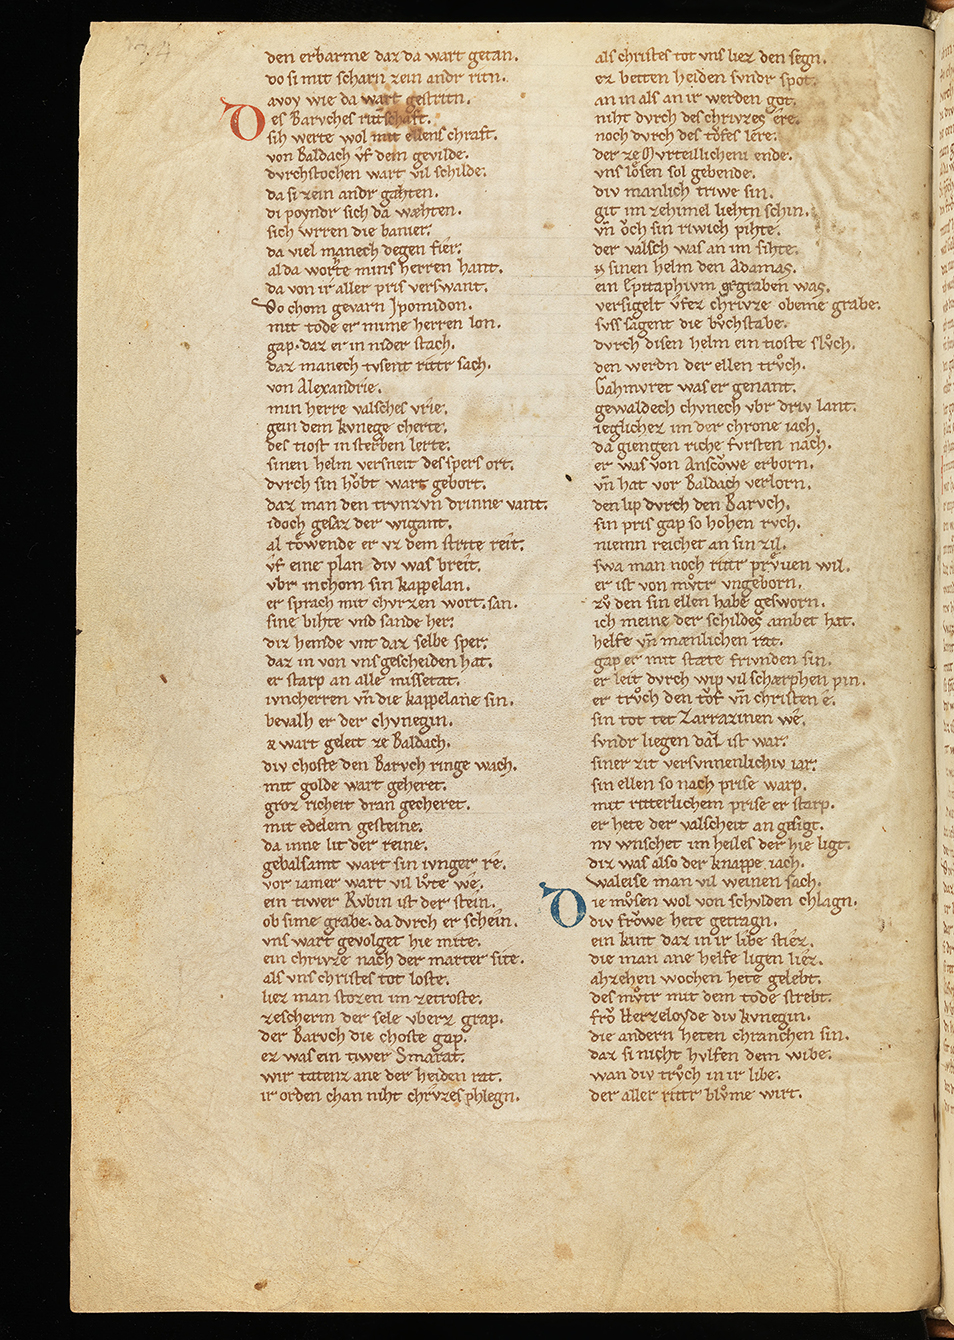 den erbarme daz da wart getan.
do si mit scharn zein andr ritn.
avoy wie da wart gestritn.
Des Baruches ritschaft.
sih werte wol mit ellens chraft.
von Baldach vf dem gevilde.
dvrchstochen wart vil schilde.
da si zein andr gahten.
di poyndr sich da wæhten.
sich wrren die banier.
da viel manech degen fier.
alda worhte mins herren hant.
da von ir aller pris verswant.
Do chom gevarn Jpomidon.
mit tode er mime herren lon.
gap. daz er in nider stach.
daz manech tvsent rittr sach.
von Alexandrie.
min herre valsches vrie.
gein dem kvnege cherte.
des tiost in sterben lerte.
sinen helm versneit des spers ort.
dvrch sin hǒbt wart gebort.
daz man den trvnzvn drinne vant.
idoch gesaz der wigant.
al tǒwende er vz dem strite reit.
vf eine plan div was breit.
vbr in chom sin kappelan.
er sprach mit chvrzen wort. san.
sine bihte vnd sande her.
diz hemde vnt daz selbe sper.
daz in von vns gescheiden hat.
er starp an alle missetat.
ivncherren vn̄ die kappelane sin.
bevalh er der chvnegin.
er wart geleit ze Baldach.
div choste den Barvch ringe wach.
mit golde wart geheret.
groz richeit dran gecheret.
mit edelem gesteine.
da inne lit der reine.
gebalsamt wart sin ivnger re.
vor iamer wart vil lv̂te we.
ein tiwer Rvbin ist der stein.
ob sime grabe. da dvrch er schein.
vns wart gevolget hie mite.
ein chrivze nach der marter site.
als vns christes tot loste.
liez man stozen im zetroste.
zescherm der sele vberz grap.
der Barvch die choste gap.
ez was ein tiwer Smarat.
wir tatenz ane der heiden rat.
ir orden chan niht chrvzes phlegn.
als christes tot vns liez den segn.
ez betten heiden svndr spot.
an in als an ir werden got.
niht dvrch des chrivzes ere.
noch dvrch des tǒfes lere.
der ze vrteillichem ende.
vns lősen sol gebende.
div manlich triwe sin.
git im zehimel liehtn schin.
vn̄ ǒch sin riwich pihte.
der valsch was an im sihte.
sinen helm den Adamas.
ein Epitaphivm ergraben was.
versigelt vfez chrivze obeme grabe.
svss sagent die bv̊chstabe.
dvrch disen helm ein tioste slv̊ch.
den werdn der ellen trv̊ch.
Gahmvret was er genant.
gewaldech chvnech vbr driv lant.
ieglichez im der chrone iach.
da giengen riche fvrsten nach.
er was von Anscǒwe erborn.
vn̄ hat vor Baldach verlorn.
den lip dvrch den Barvch.
sin pris gap so hohen rvch.
niemn reichet an sin zil.
swa man noch rittr prv̊uen wil.
er ist von mv̊tr vngeborn.
zv̊ den sin ellen habe gesworn.
ich meine der schildes ambet hat.
helfe vn̄ mænlichen rat.
gap er mit stæte frivnden sin.
er leit dvrch wip vil schærphen pin.
er trv̊ch den tǒf vn̄ christen e.
sin tot tet Zarrazinen we.
svndr liegen daz ist war.
siner zit versvnnenlichiv iar.
sin ellen so nach prise warp.
mit ritterlichem prise er starp.
er hete der valscheit an gesigt.
nv wnschet im heiles der hie ligt.
diz was also der knappe iach.
Waleise man vil weinen sach.
Die mv̊sen wol von schvlden chlagn.
div frǒwe hete getragn.
ein kint daz in ir libe stiez.
die man ane helfe ligen liez.
ahzehen wochen hete gelebt.
des mv̊tr mit dem tode strebt.
frǒ Herzeloyde div kvnegin.
die andern heten chranchen sin.
daz si niht hvlfen dem wibe.
wan div trv̊ch in ir libe.
der aller rittr blv̊me wirt.